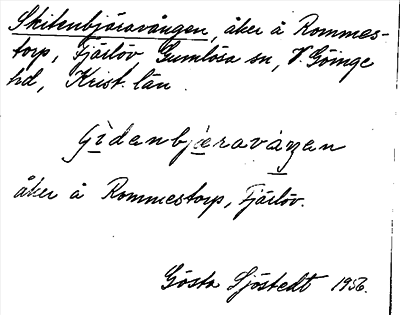 Skitenbjäravången, åker å Rommes-
torp, Fjärlöv Gumlösa sn, V. Göinge
hd, Krist. län.
Gidenbjeravåŋen
åker å Rommestorp, Fjärlöv.
Gösta Sjöstedt 1936.